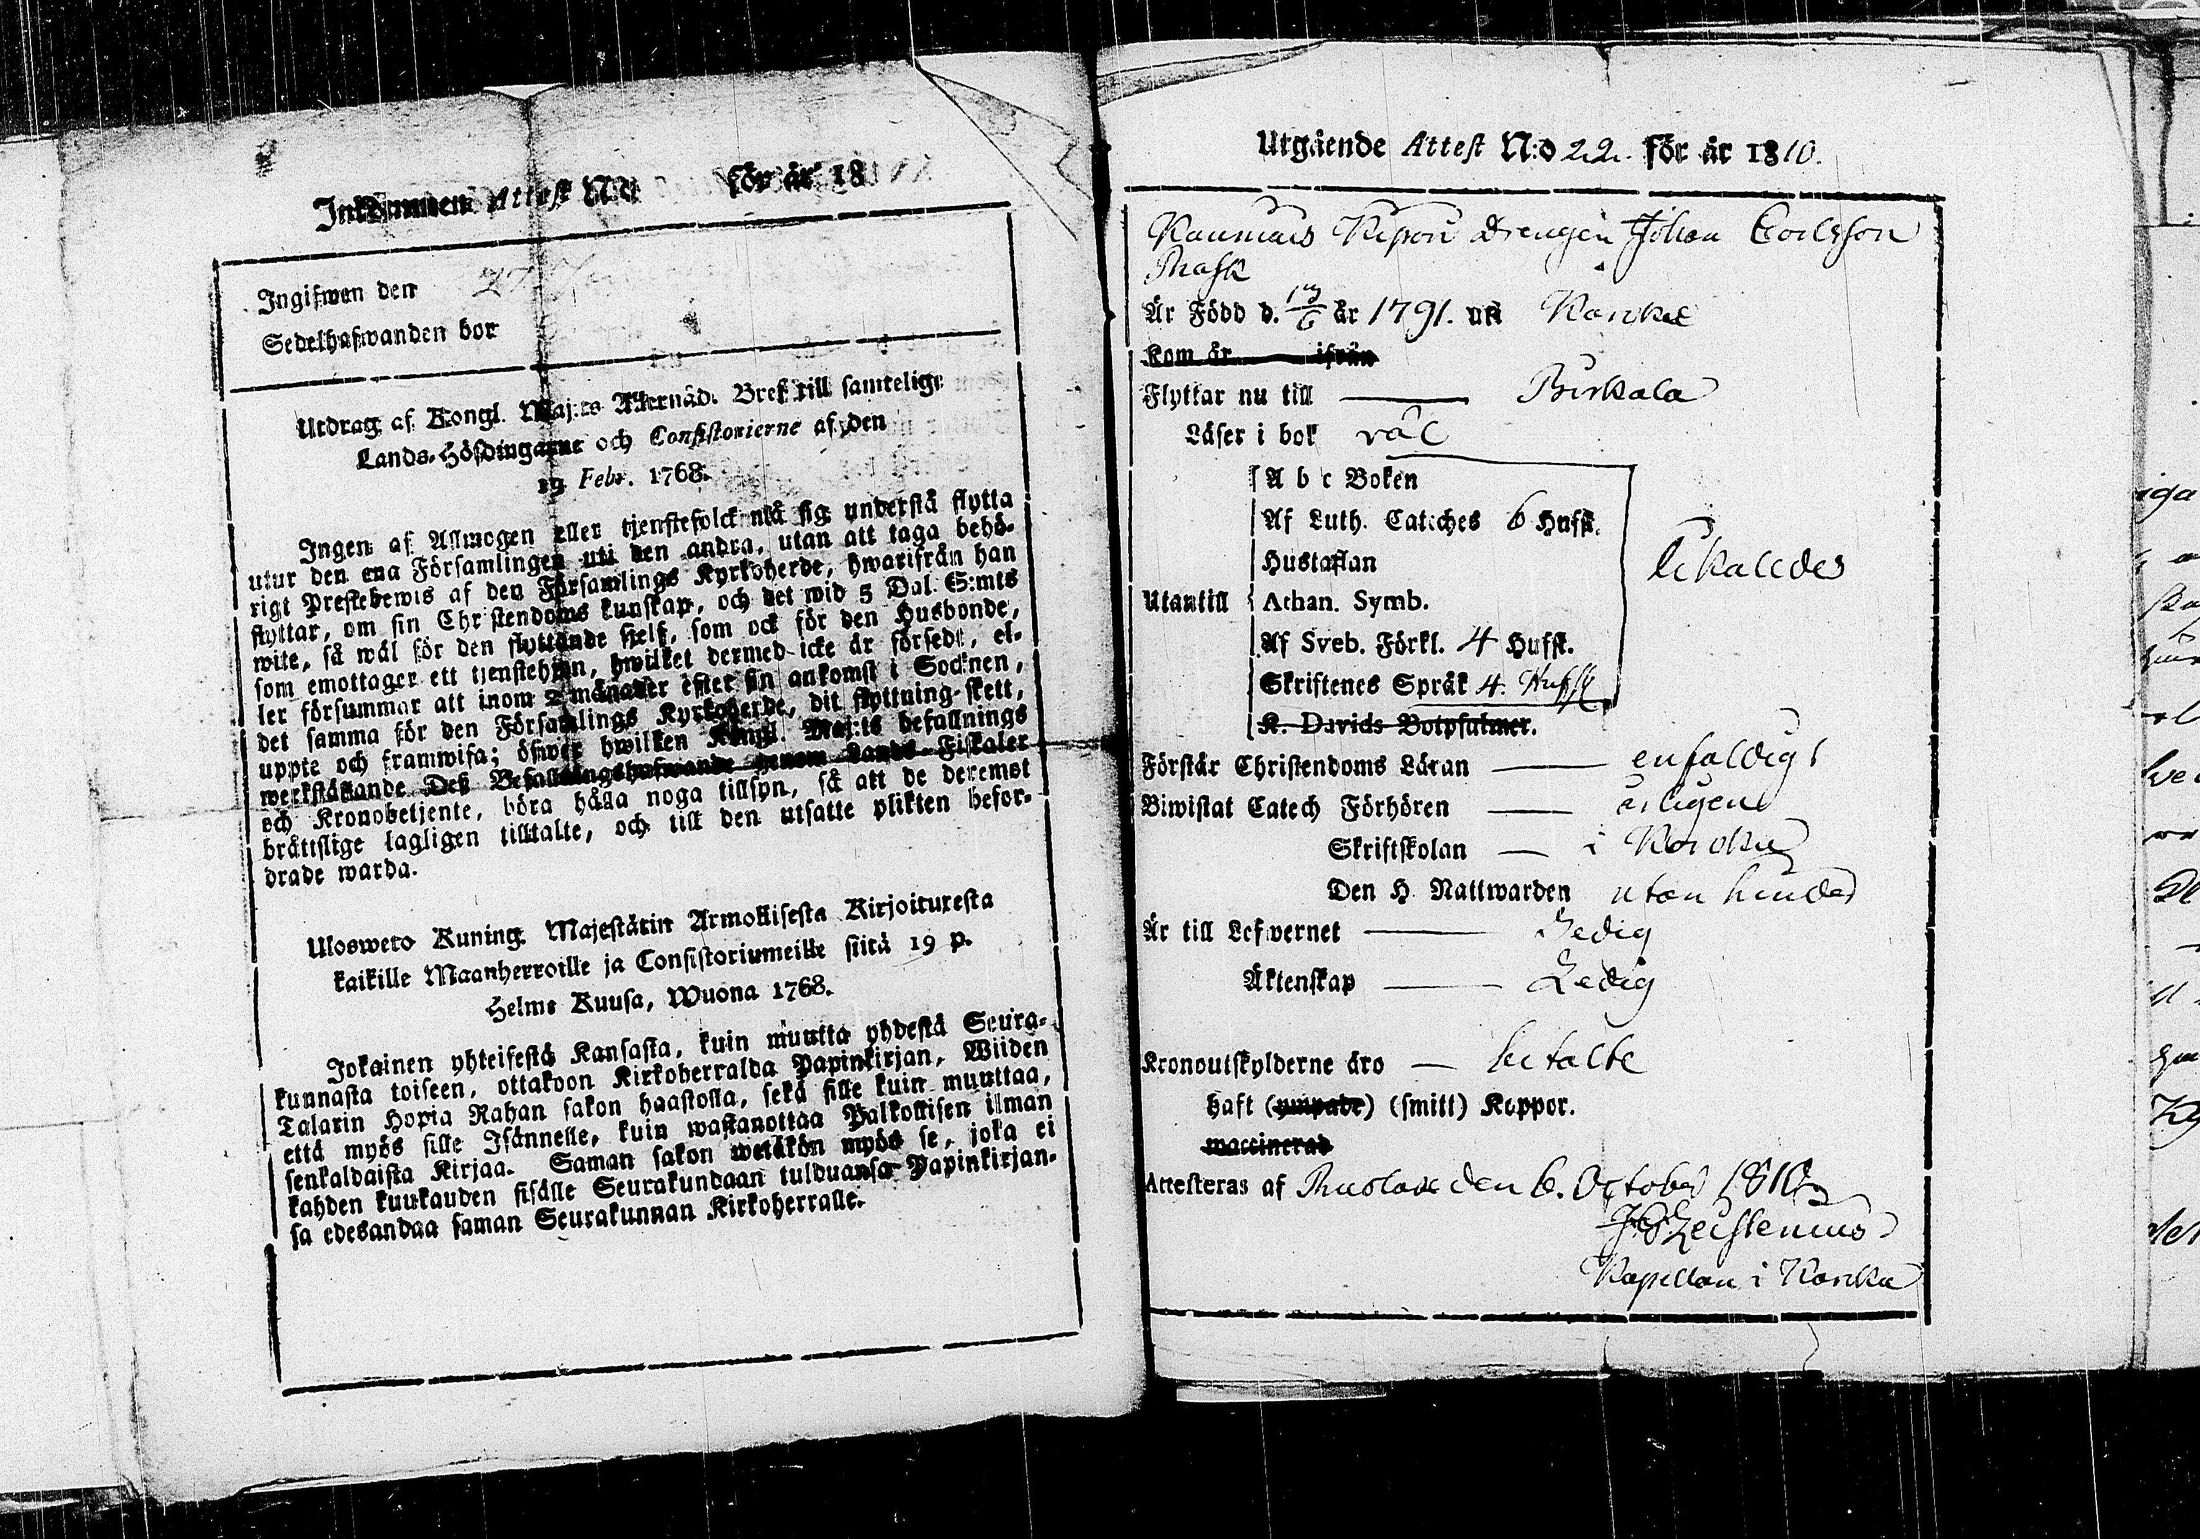 Inkommen Attest N:o för år 18
Ingifwen den 27
Sedelhafwanden bor
Utdrag af Kongl. Maj:ts Allernåd. Bref till samtelige
Lands-Höfdingarne och Consistorierne af den
19 Febr. 1768.
Ingen af Allmogen eller tjenstefolck må sig understå flytta
utur den ena Församlingen uti den andra, utan att taga behö-
rigt Prestebewis af den Församlings Kyrkoherde, hwarifrån han
flyttar, om sin Christendoms kunskap, och det wid 5 Dal. S:mts
wite, så wäl för den flyttande sjelf, som ock för den Husbonde,
som emottager ett tjenstehjon, hwilket dermed icke är försedt, el-
ler försummar att inom 2 månader efter sin ankomst i Socknen,
det samma för den Församlings Kyrkoherde, dit flyttning skett,
uppte och framwisa; öfwer hwilken Kongl. Maj:ts befallnings
werkställande Deß Befallningshafwande genom Lands-Fiskaler
och Kronobetjente, böra hålla noga tillsyn, så att de deremot
bråttslige lagligen tilltalte, och till den utsatte plikten befor-
drade warda.
Ulosweto Kuning. Majestätin Armollisesta Kirjoituxesta
kaikille Maanherroille ja Consistoriumeille siitä 19 p.
Helme Kuusa, Wuona 1768.
Jokainen yhteisestä Kansasta, kuin muutta yhdestä Seura-
kunnasta toiseen, ottakoon Kirkoherralda Papinkirjan, Wiiden
Talarin Hopia Rahan sakon haastolla, sekä sille kuin muuttaa,
että myös sille Isännelle, kuin wastanottaa Palkollisen ilman
senkaldaista Kirjaa. Saman sakon wetäkön myös se, joka ei
kahden kuukauden sisälle Seurakundaan tulduansa Papinkirjan-
sa edesandaa saman Seurakunnan Kirkoherralle.
Utgående Attest N:o 22. för år 1810.
Drengen Johan Carlsson
Mask
Är Född d. 13/6 år 1791. uti Karckü
Kom år ifrån
Flyttar nu till Birkala
Läser i bok väl
A b c Boken
Af Luth. Catéches 6 Hufst.
Hustaflan
likaledes
Utantill Athan. Symb.
Af Sveb. Förkl. 4 Hufst.
Skriftenes Språk 4. Hufst
K. Davids Botpsalmer.
Förstår Christendoms Läran enfaldigt
Biwistat Catech Förhören årligen
Skriftskolan i Karckü
Den H. Nattwarden utan hinder
Är till Lefwernet Ledig
Äktenskap Ledig
Kronoutskylderne äro betalte
haft (ympade) (smitt) Koppor.
waccinerad
Attesteras af Mustave den 6. October 1810
Kapellan i Karckü